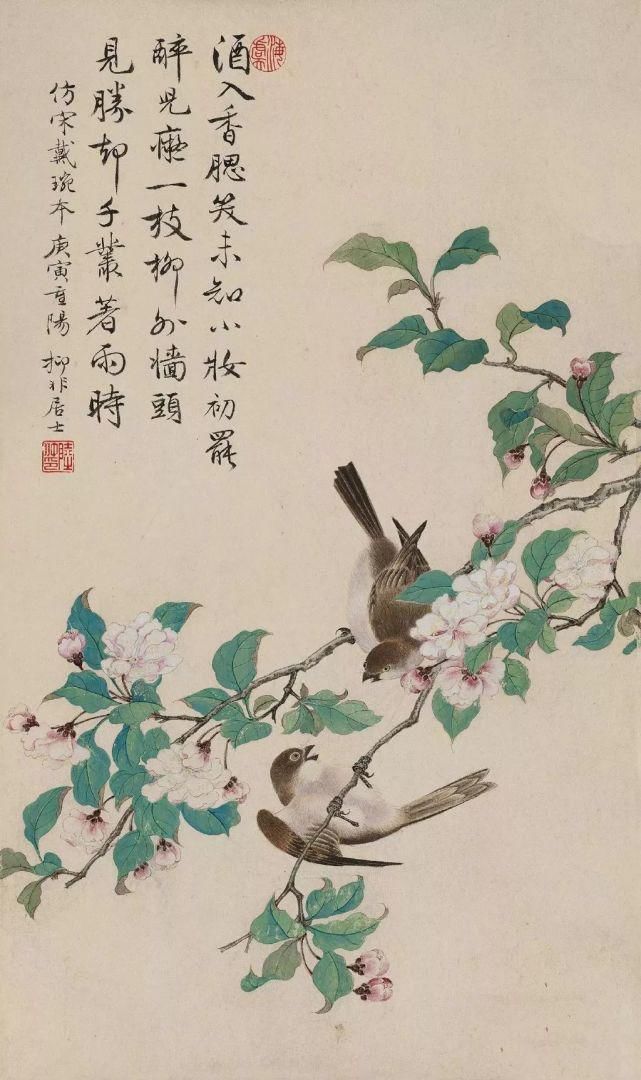 海虞
酒入香腮笑未知小妝初罷
醉兒癡一枝柳外牆頭
見勝却千叢著雨時
仿宋戴琬本庚寅重陽 抑非居士